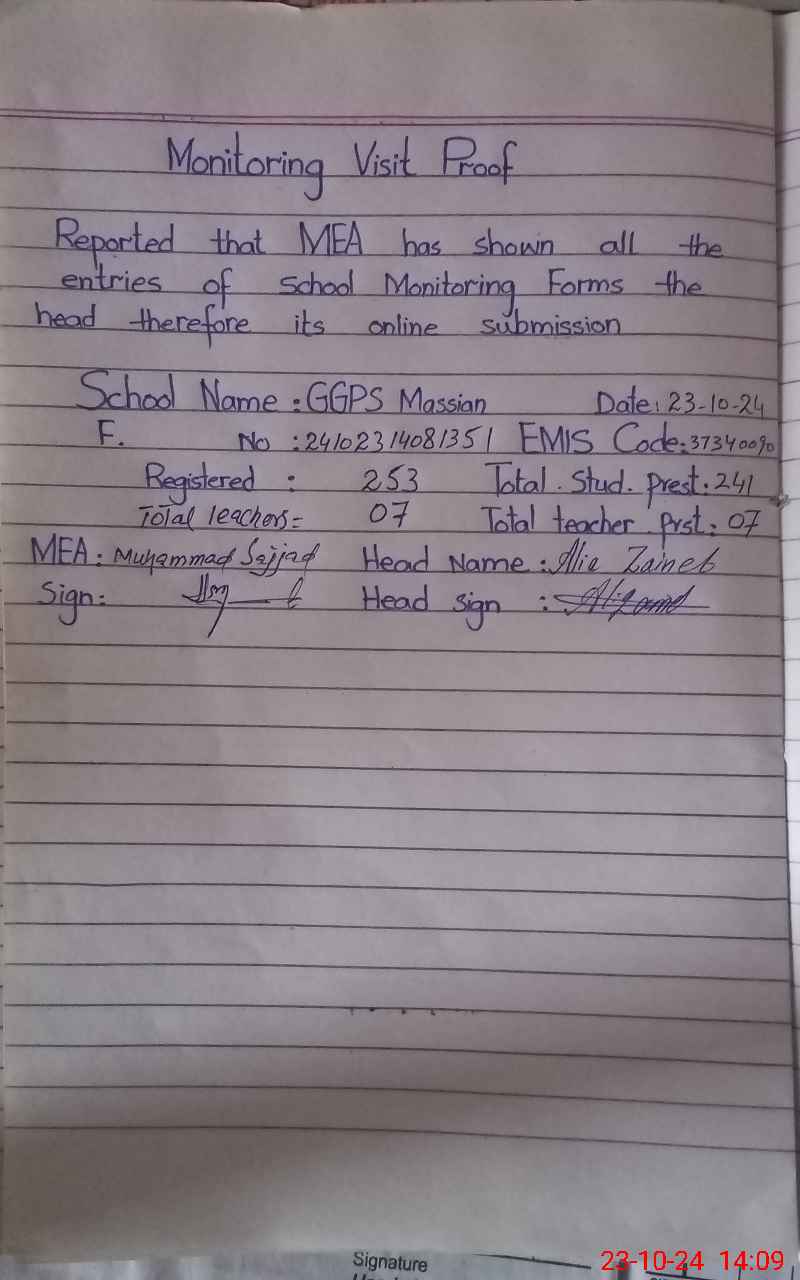 Monitoring Visit Proof
Reported that MEA has shown all the
entries of School Monitoring Forms the
head therefore its online submission
School Name : GGPS Massian Date: 23-10-24
F. No : 24102314081351 EMIS Code: 37340090
Registered : 253 Total. Stud. prest: 241
Total teachers= 07 Total teacher prst: 07
MEA: Muhammad Sajjad Head Name: Alia Zaineb
Sign: Head sign :
Signature
23-10-24 14:09